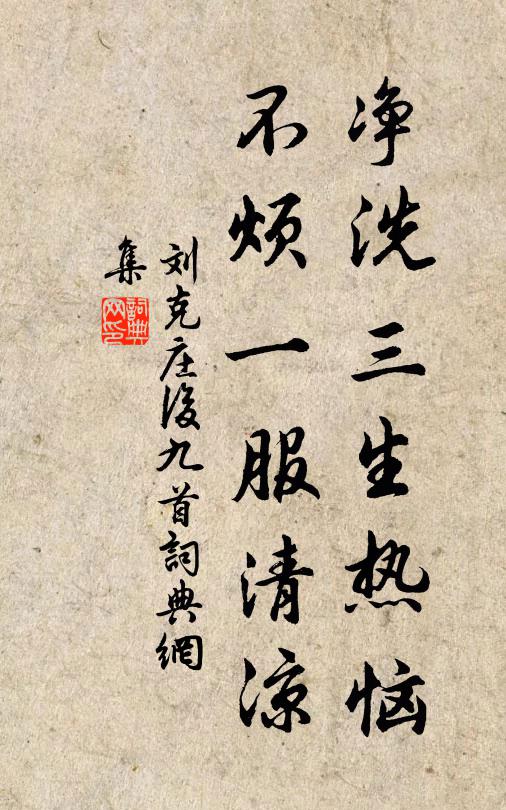 净洗三生热恼
不烦一服清凉
刘克庄後九首詞典網
集
詞典网印